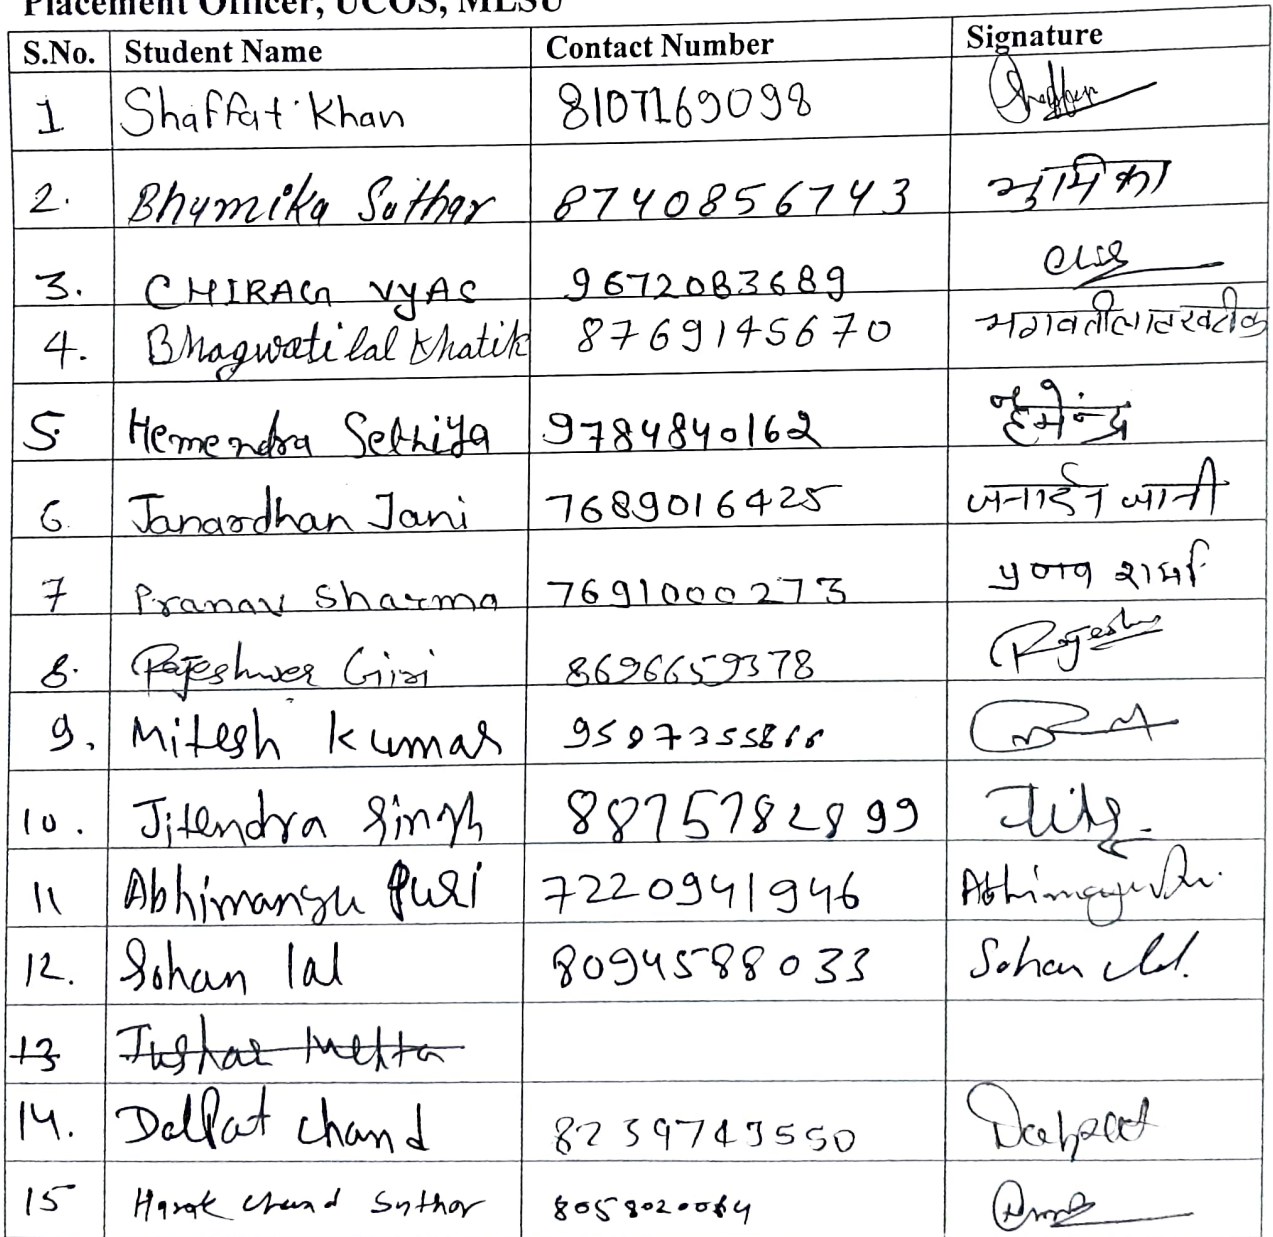 Placement Officer, UCOS, MLSU
S.No. Student Name Contact Number Signature
1 Shaffat Khan 8107169098
2. Bhumika Suthar 8740856743 भुमिका
3. CHIRAG VYAS 9672083689
4. Bhagwati lal Khatik 8769145670 भगवतीलाल खटीक
5. Hemendra Sethiya 9784840162 हेमेन्द्र
6. Janardhan Jani 7689016425 जनार्दन जानी
7 Pranav Sharma 7691000273 प्रणव शर्मा
8. Rajeshwer Giri 8696659378 Rajeshw
9. Mitesh Kumar
10. Jitendra Singh 8875782899
11 Abhimanyu Puri 7220941946 Abhimanyu
12. Sohan lal 8094588033 Sohan lal.
13 Tushar Mehta
14. Dalpat chand 8239743550
15 Harak chand Suthar